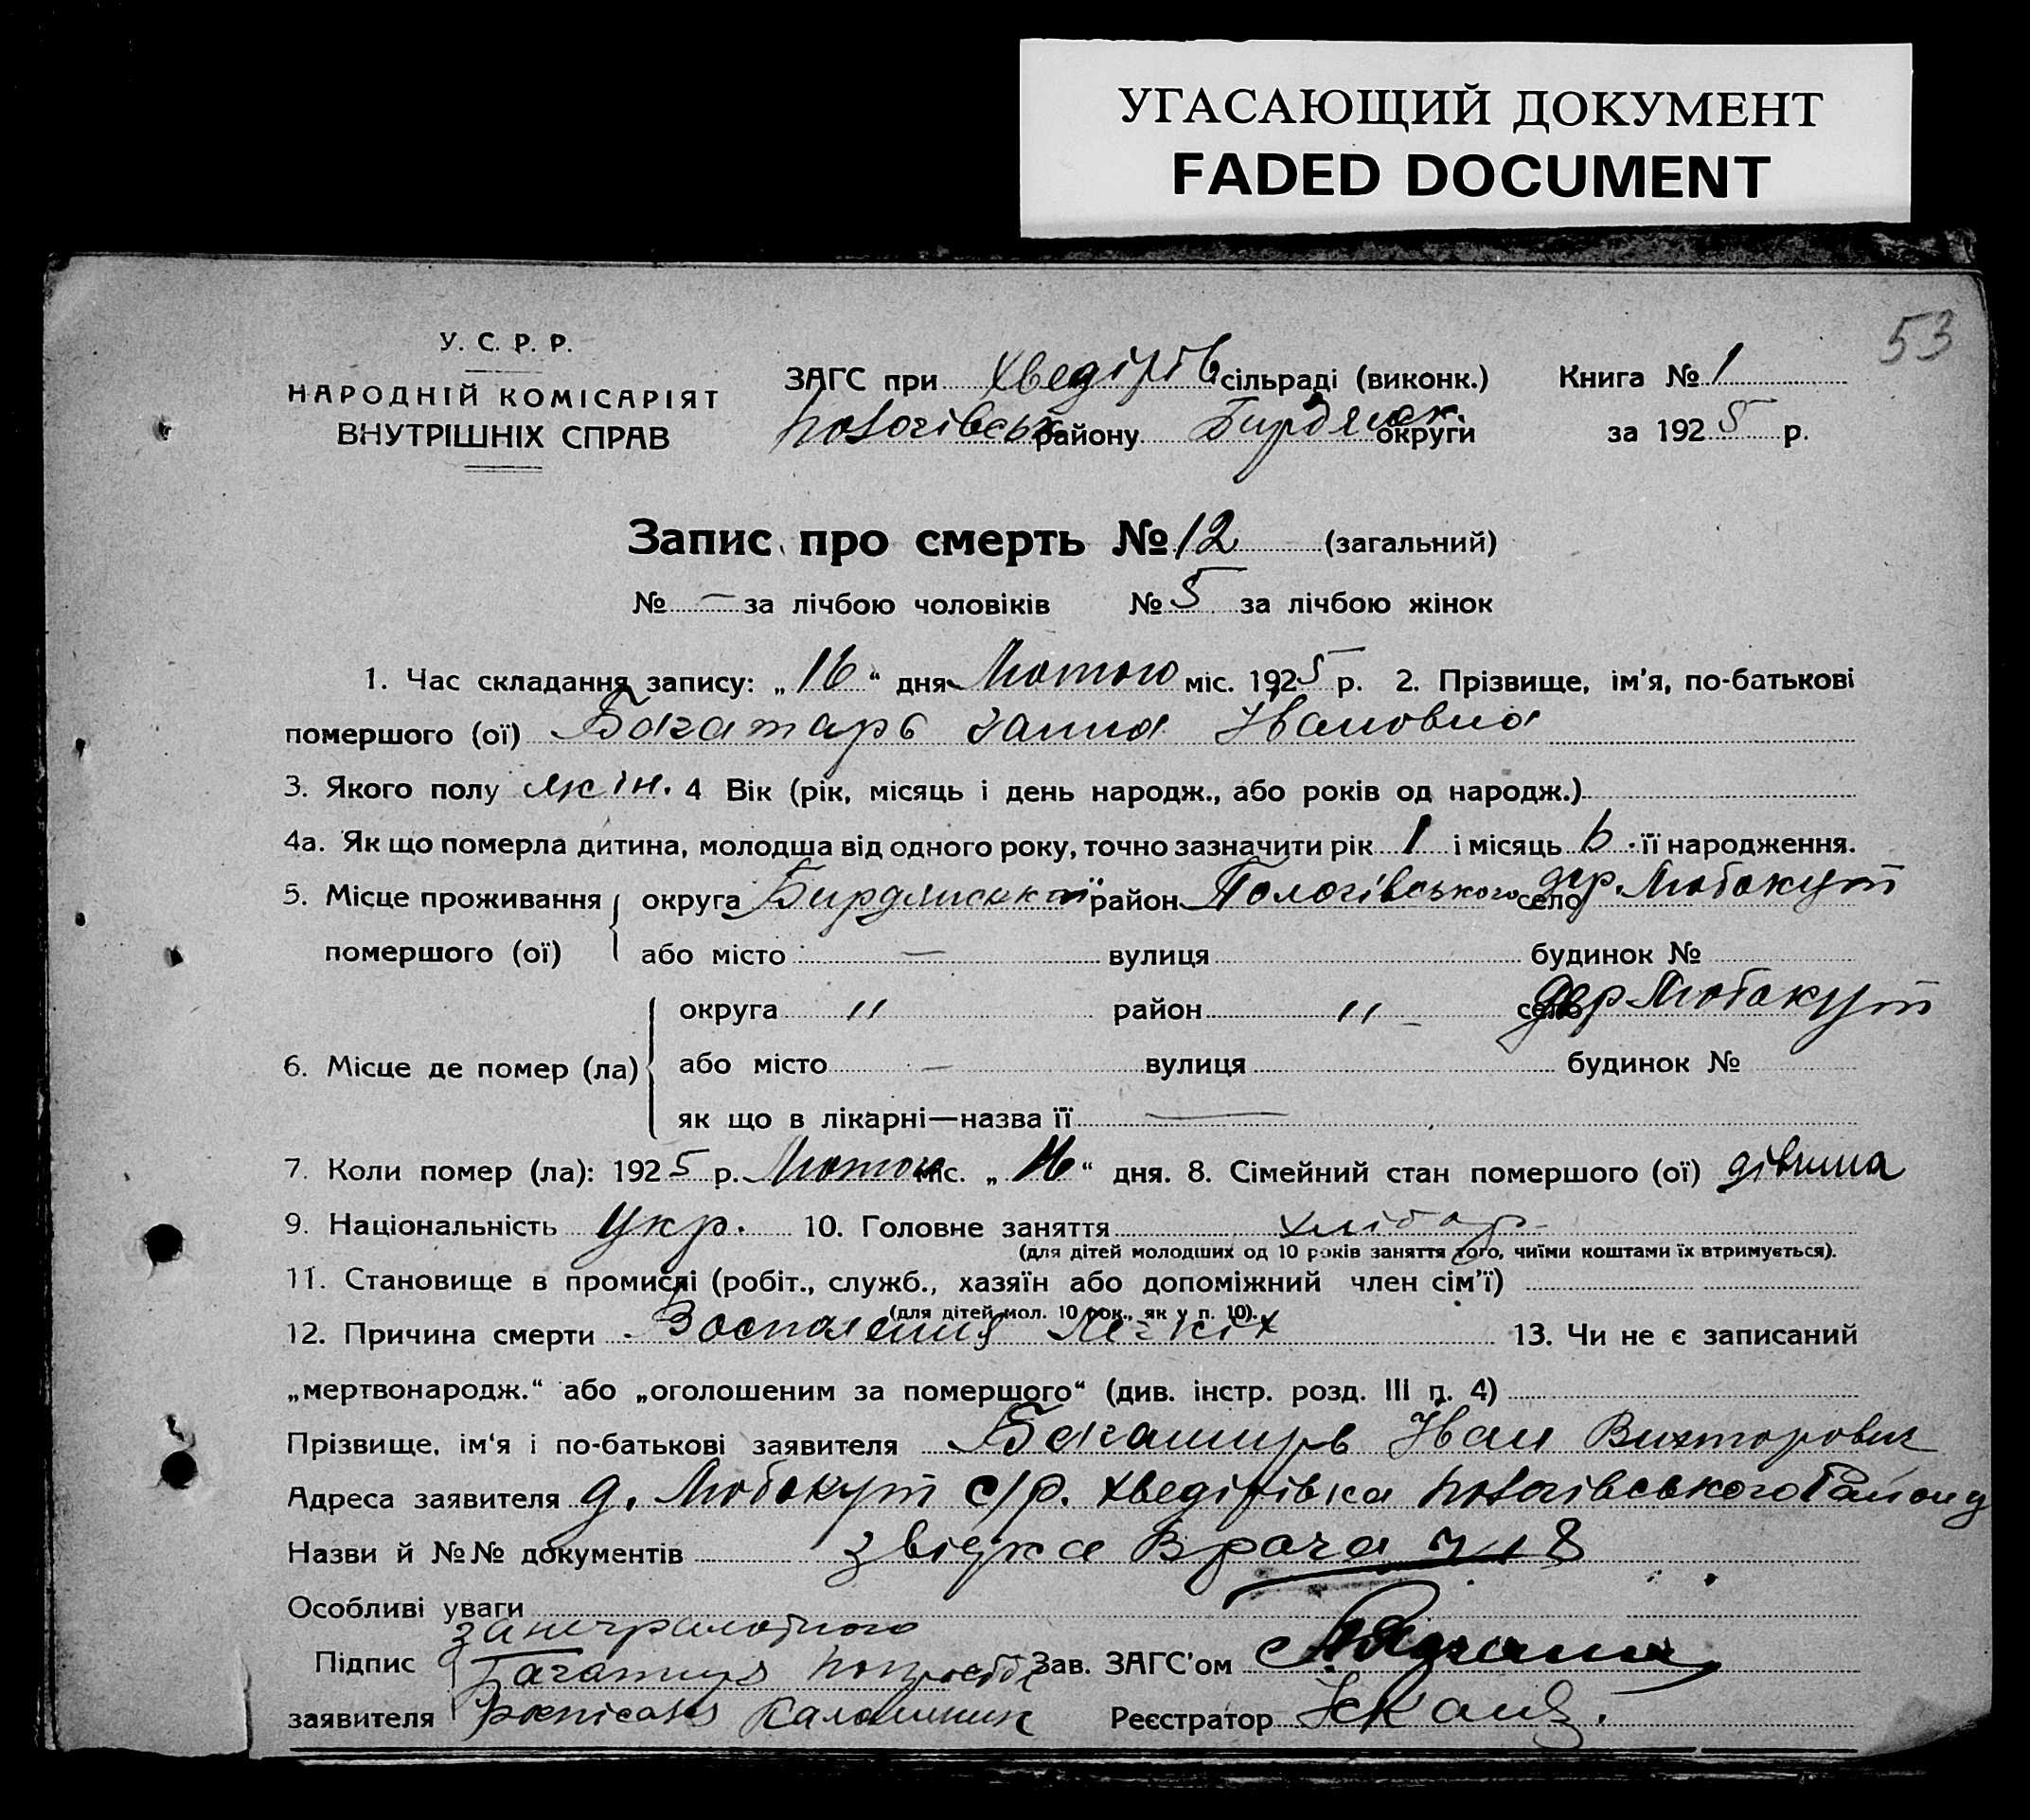 УГАСАЮЩИЙ ДОКУМЕНТ
FADED DOCUMENT
53
У. С. Р. Р.
НАРОДНІЙ КОМІСАРІЯТ
ВНУТРІШНІХ СПРАВ
ЗАГС при Хведірів сільраді (виконк.) Книга № 1
району Бирдянск. округи за 1925 р.
Запис про смерть № 12 (загальний)
№ — за лічбою чоловіків № 5 за лічбою жінок
1. Час складання запису: „16“ дня Лютого міс. 1925 р. 2. Прізвище, ім'я, по-батькові
помершого (ої) Богатарь Ганна Івановна
3. Якого полу жін. 4 Вік (рік, місяць і день народж., або років од народж.)
4а. Як що померла дитина, молодша від одного року, точно зазначити рік 1 і місяць 6 її народження.
5. Місце проживання округа Бирдянської район Пологівського село дер. Любокут
помершого (ої) або місто — вулиця будинок №
округа " район " село дер Любокут
6. Місце де помер (ла) або місто — вулиця будинок №
як що в лікарні—назва її —
7. Коли помер (ла): 1925 р. Лютого міс. „16“ дня. 8. Сімейний стан помершого (ої) дівчина
9. Національність Укр. 10. Головне заняття хлібор
(для дітей молодших од 10 років заняття того, чиїми коштами їх втримується).
11. Становище в промислі (робіт., служб., хазяїн або допоміжний член сім'ї)
(для дітей мол. 10 рок., як у п. 10).
12. Причина смерти Воспаления Легкіх 13. Чи не є записаний
„мертвонародж.“ або „оголошеним за помершого“ (див. інстр. розд. III п. 4)
Прізвище, ім'я і по-батькові заявителя Іван Вихторович
Адреса заявителя д. Любокут с/р. Хведірівка Пологівського Району
Назви й №№ документів звідка Врача
Особливі уваги
за неграмотного
Підпис Зав. ЗАГС'ом
заявителя Калашник Реєстратор